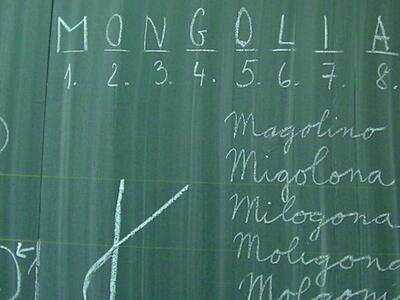 M O N G O L I A
1. 2. 3. 4. 5. 6. 7. 8.
Magolino
Migolona
Milogona
Moligona